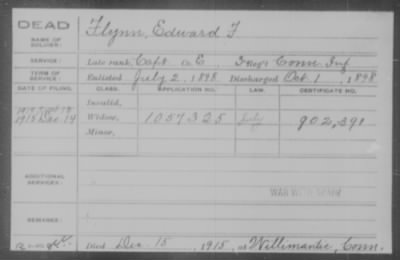 DEAD
NAME OF SOLDIER:
Flynn, Edward F
SERVICE:
Late rank, Capt. Co. E, 3 Reg't Conn. Inf
TERM OF SERVICE:
Enlisted July 2, 1898, Discharged Oct. 1, 1898
DATE OF FILING. CLASS. APPLICATION NO. LAW. CERTIFICATE NO.
Invalid,
1915 Dec. 14 Widow, 1057325 July 902,391
Minor,
ADDITIONAL SERVICES:
WAR WITH SPAIN
REMARKS:
Died Dec. 15, 1915, at Willimantic, Conn.